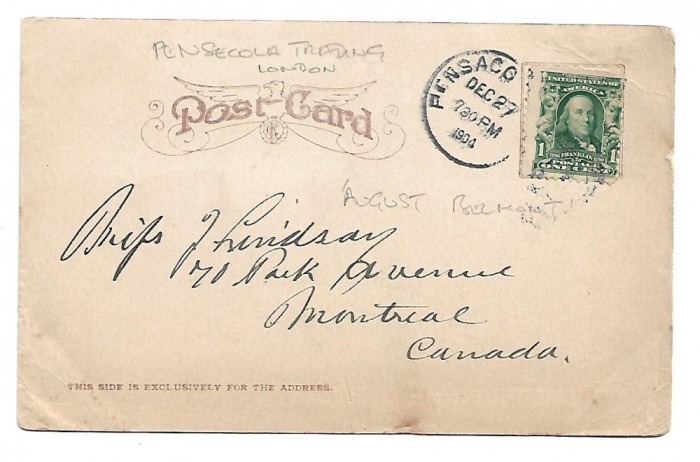 PENSECOLA TRADING
LONDON
Post Card
PENSACO
DEC 27
7 30 PM
1904
UNITED STATES OF
AMERICA
1 FRANKLIN 1
POSTAGE
ONE CENT
'AUGUST BELMONT'
Miss J Lindsay
70 Park Avenue
Montreal
Canada.
THIS SIDE IS EXCLUSIVELY FOR THE ADDRESS.